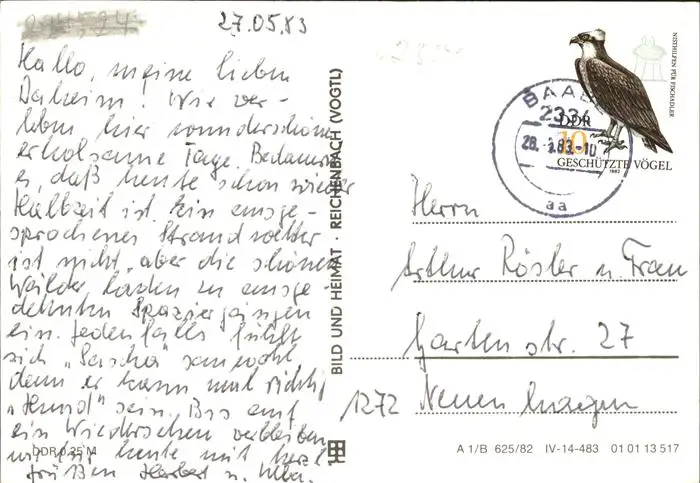 27.05.83
Hallo, meine lieben
Daheim! Wir ver-
leben hier wunderschöne
erholsame Tage. Bedauern
es, daß heute schon wieder
Halbzeit ist. Ein ausge-
sprochenes Strandwetter
ist nicht, aber die schönen
Wälder laden zu ausge-
dehnten Spaziergängen
ein. Jedenfalls fühlt
sich „Sascha" sauwohl
denn er kann mal richtig
„Hund" sein. Bis auf
ein Wiedersehen verbleiben
wir für heute mit herzl.
Grüßen Herbert u.
DDR 0,25 M
BILD UND HEIMAT · REICHENBACH (VOGTL)
NISTHILFEN FÜR FISCHADLER
BAABE
233
DDR
10
28. 83.-10
GESCHÜTZTE VÖGEL
1982
aa
Herrn
Arthur Rösler u. Frau
Gartenstr. 27
1272 Neuenhagen
A 1/B 625/82 IV-14-483 01 01 13 517